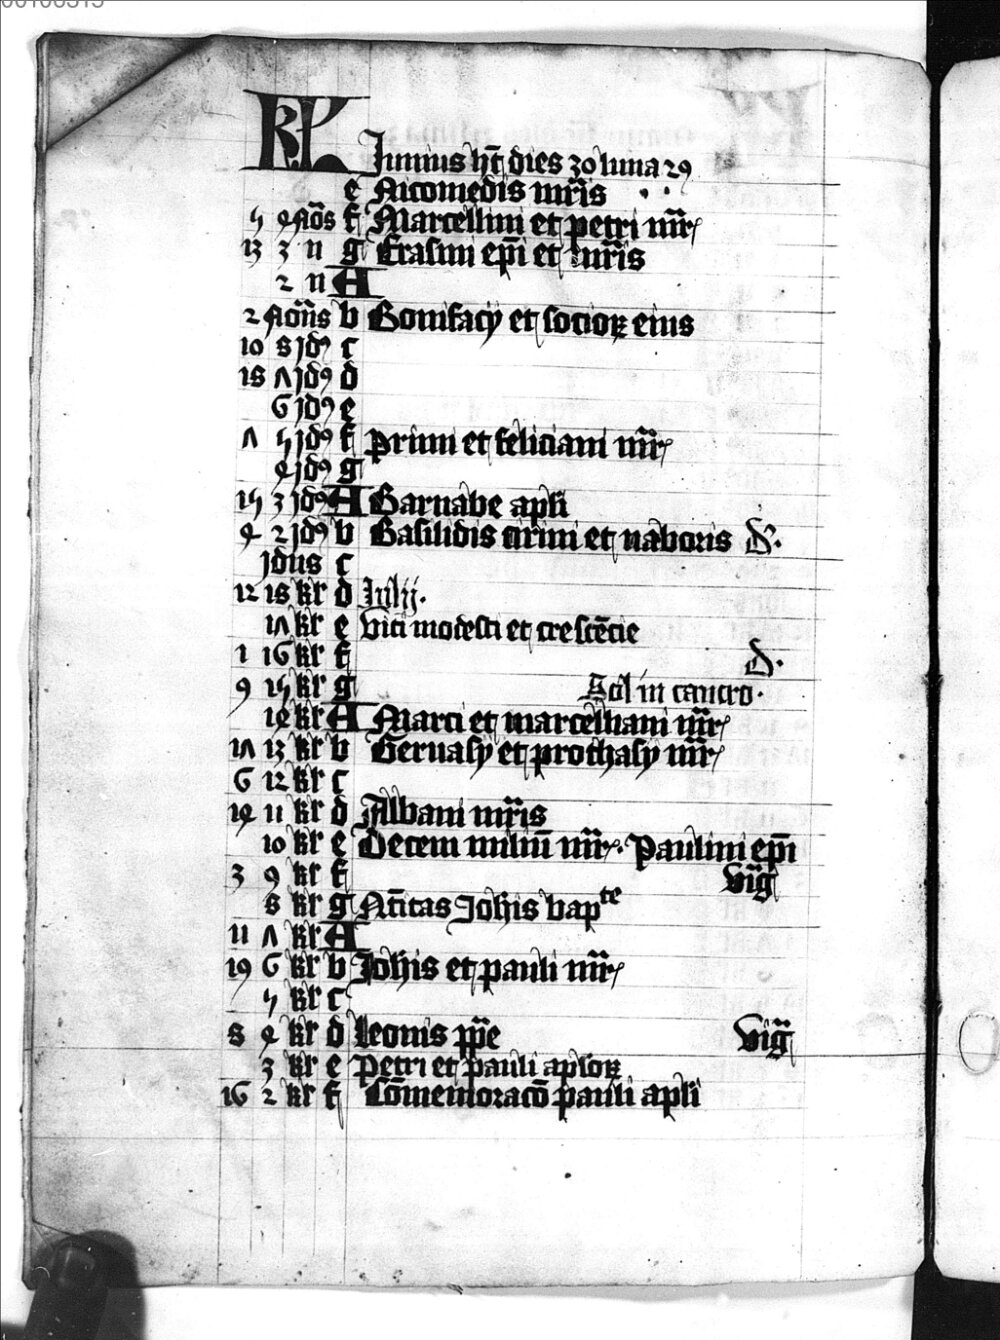 KL Junius ht dies 30 luna 29
e Nicomedis mris
5 4 Nōs f Marcellini et petri mr
13 3 n g Erasmi epi et mris
2 n A
2 Nonas b Bonifacij et socioꝝ eius
10 8 jdꝰ c
18 7 jdꝰ d
6 jdꝰ e
7 5 jdꝰ f primi et feliciani mr
4 jdꝰ g
15 3 jdꝰ A Barnabe apli
4 2 jdꝰ b Basilidis cirini et naboris d.
jdus c
12 18 kl d Julij.
17 kl e Viti modesti et crescētie
1 16 kl f d.
9 15 kl g Sol in cancro.
14 kl A Marci et marcelliani mr
17 13 kl b Gervasij et prothasij mr
6 12 kl c
14 11 kl d Albani mris
10 kl e Decem miliū mr. Paulini epi
3 9 kl f vig
8 kl g Natitas Johis bapte
11 7 kl A
19 6 kl b Johis et pauli mr
5 kl c
8 4 kl d Leonis ppe vig
3 kl e Petri et pauli aploꝝ
16 2 kl f Cōmemoracō pauli apli